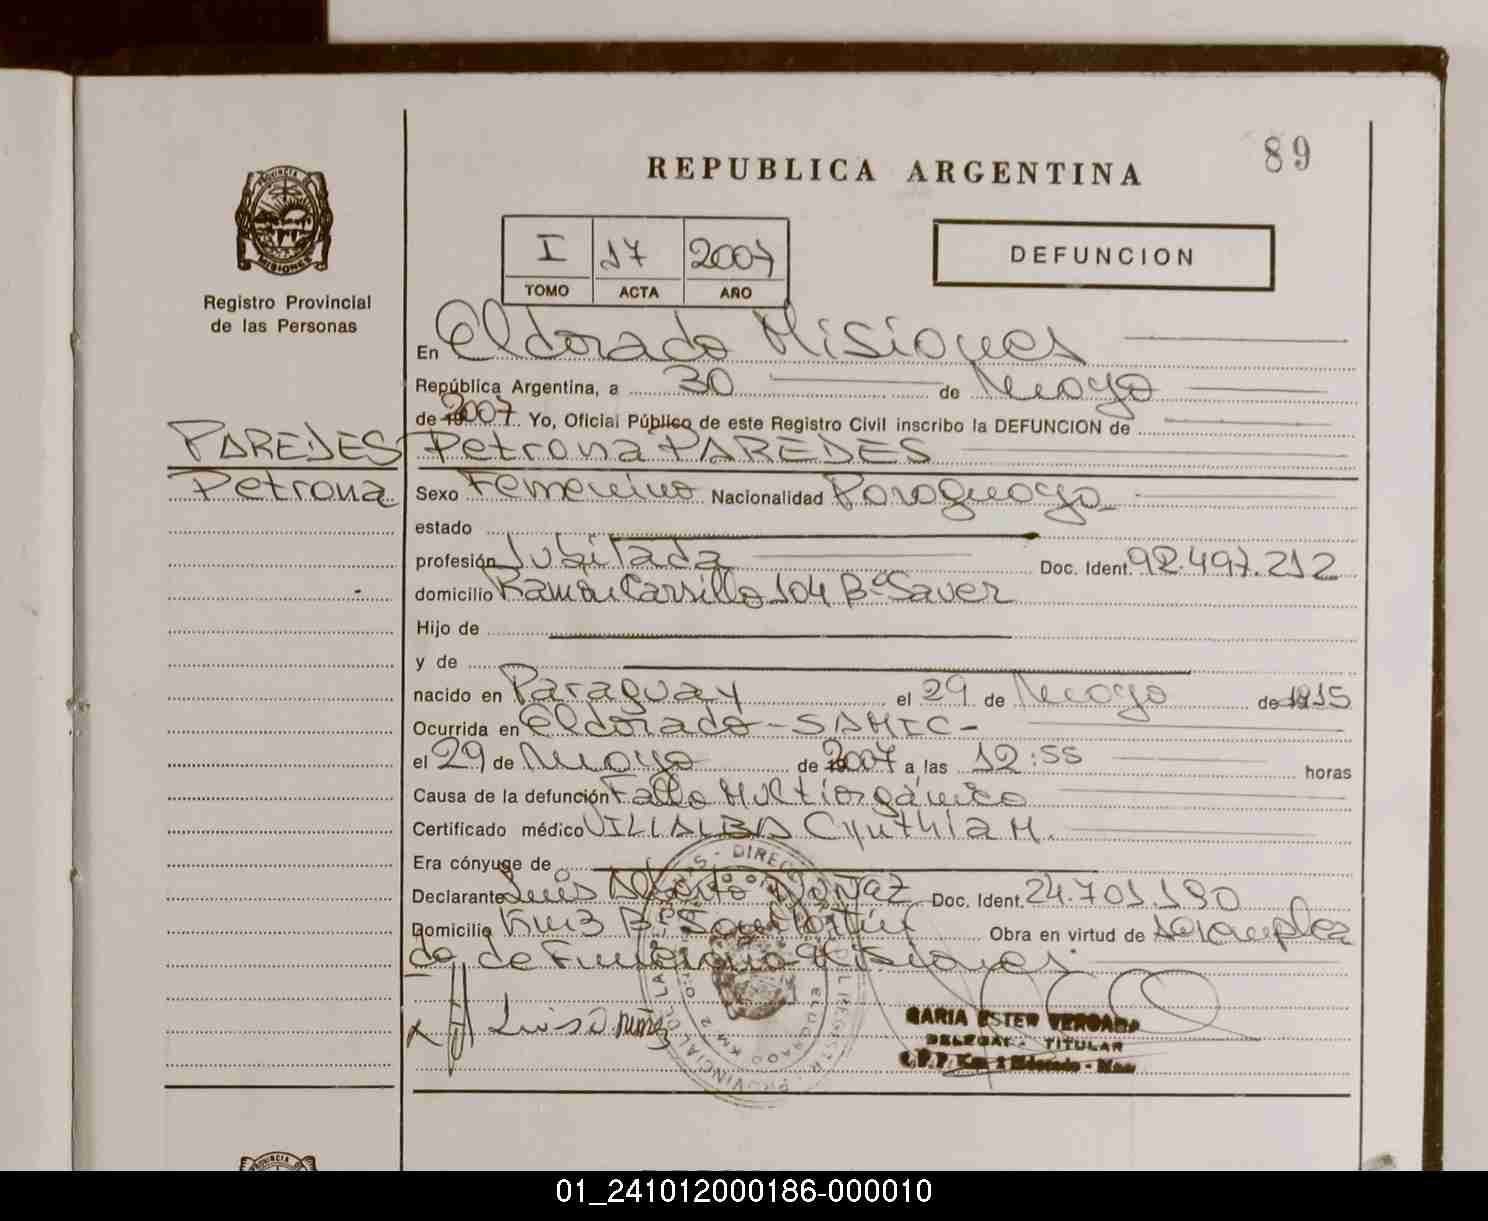 89
REPUBLICA ARGENTINA
PROVINCIA DE
MISIONES
Registro Provincial
de las Personas
I 17 2007
TOMO ACTA AÑO
DEFUNCION
En Eldorado Misiones
República Argentina, a 30 de Mayo
de 2007 Yo, Oficial Público de este Registro Civil inscribo la DEFUNCION de
PAREDES Petrona PAREDES
Petrona
Sexo Femenino Nacionalidad Paraguaya
estado
profesión Jubilada Doc. Ident. 92.497.212
domicilio Ramón Carrillo 104 Bº Saver
Hijo de
y de
nacido en Paraguay el 29 de Mayo de 1915
Ocurrida en Eldorado - SAMIC -
el 29 de Mayo de 2007 a las 12:55 horas
Causa de la defunción Fallo Multiorgánico
Certificado médico VILLALBA Cynthia M.
Era cónyuge de
Declarante Luis Alberto Doc. Ident. 24.701.190
Domicilio Km 3 Bº San Martín Obra en virtud de
do de Misiones.
Luis
MARIA ESTER VERGARA
DELEGADA TITULAR
R.P.P. Km 2 Eldorado - Mnes
PROVINCIA DE
01_241012000186-000010